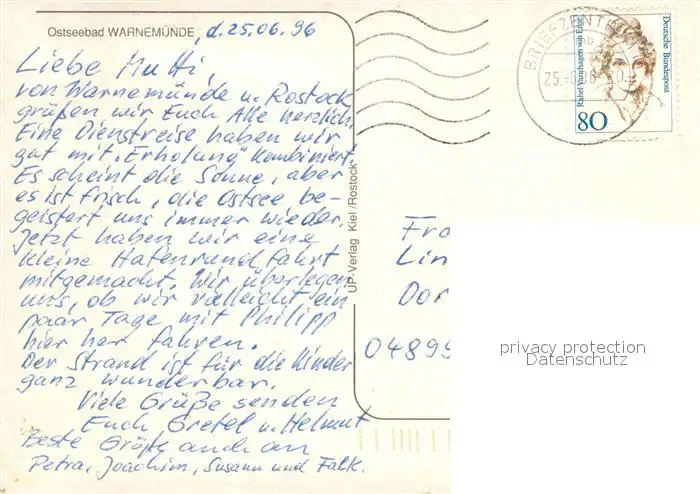 Ostseebad WARNEMÜNDE, d. 25.06.96
Liebe Mutti,
von Warnemünde u. Rostock
grüßen wir Euch Alle herzlich.
Eine Dienstreise haben wir
gut mit „Erholung" kombiniert.
Es scheint die Sonne, aber
es ist frisch, die Ostsee be-
geistert uns immer wieder.
Jetzt haben wir eine
kleine Hafenrundfahrt
mitgemacht. Wir überlegen
uns, ob wir vielleicht ein
paar Tage mit Philipp
hier her fahren.
Der Strand ist für die Kinder
ganz wunderbar.
Viele Grüße senden
Euch Gretel u. Helmut
Beste Grüße auch an
Petra, Joachim, Susann und Falk.
UP-Verlag Kiel/Rostock
BRIEFZENTRUM
25.-6.96
Deutsche Bundespost
Rahel Varnhagen von Ense
80
Fra
Lin
Dor
04899
privacy protection
Datenschutz